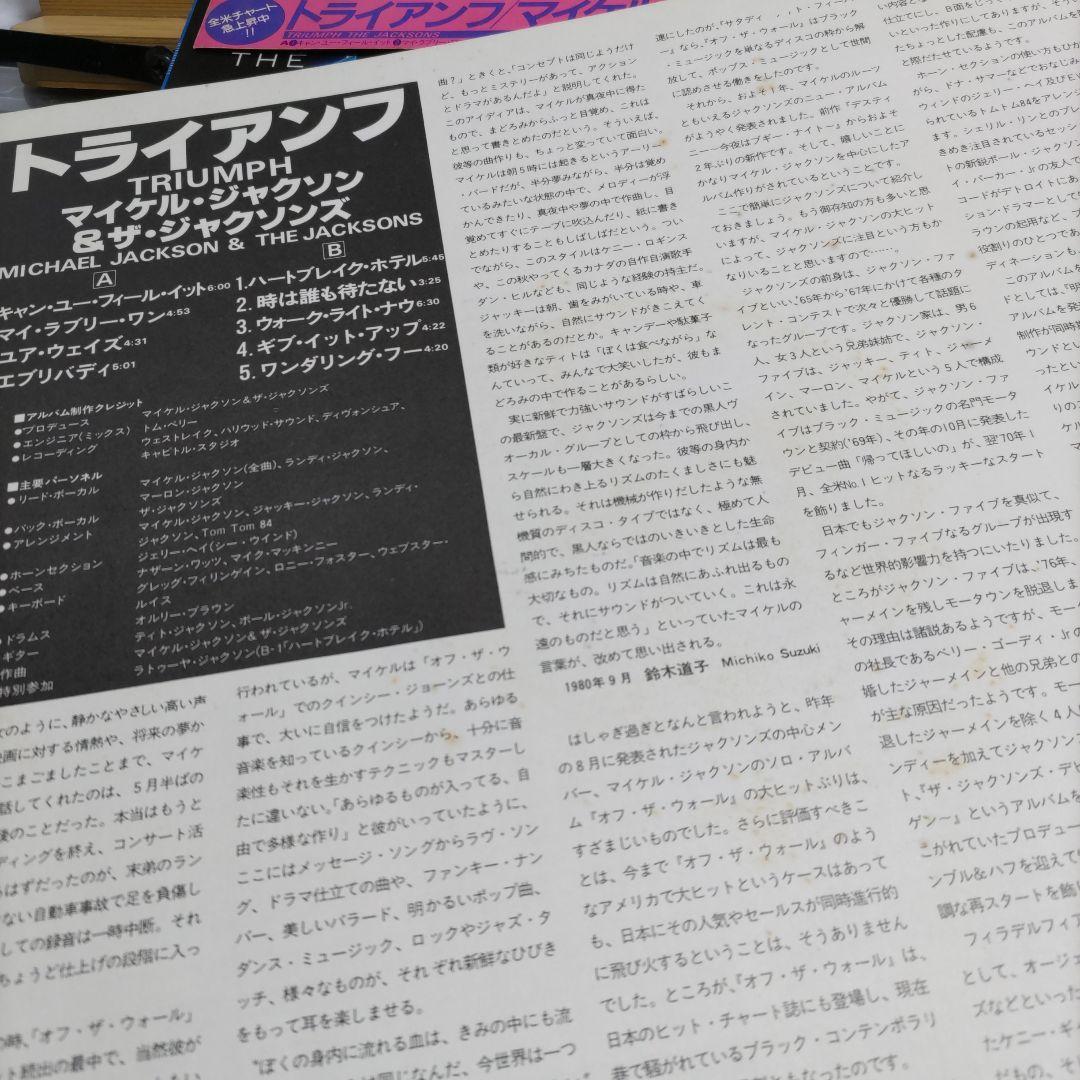 全米チャート
急上昇中
!!
トライアンフ/マイケル
TRIUMPH THE JACKSONS
THE
トライアンフ
TRIUMPH
マイケル・ジャクソン
&ザ・ジャクソンズ
MICHAEL JACKSON & THE JACKSONS
A
キャン・ユー・フィール・イット6:00
マイ・ラブリー・ワン4:53
ユア・ウェイズ4:31
エブリバディ5:01
B
1.ハートブレイク・ホテル5:45
2.時は誰も待たない3:25
3.ウォーク・ライト・ナウ6:30
4.ギブ・イット・アップ4:22
5.ワンダリング・フー4:20
■アルバム制作クレジット
●プロデュース マイケル・ジャクソン&ザ・ジャクソンズ
●エンジニア(ミックス) トム・ペリー
●レコーディング ウェストレイク、ハリウッド・サウンド、ディヴォンシュア、
キャピトル・スタジオ
■主要パーソネル
●リード・ボーカル マイケル・ジャクソン(全曲)、ランディ・ジャクソン、
マーロン・ジャクソン
●バック・ボーカル ザ・ジャクソンズ
●アレンジメント マイケル・ジャクソン、ジャッキー・ジャクソン、ランディ・
ジャクソン、Tom Tom 84
●ホーンセクション ジェリー・ヘイ(シー・ウインド)
●ベース ナザーン・ワッツ、マイク・マッキンニー
●キーボード グレッグ・フィリンゲイン、ロニー・フォスター、ウェブスター・
ルイス
ドラムス オルリー・ブラウン
ギター ティト・ジャクソン、ポール・ジャクソンJr.
作曲 マイケル・ジャクソン&ザ・ジャクソンズ
特別参加 ラトゥーヤ・ジャクソン(B-1「ハートブレイク・ホテル」)
でのように、静かなやさしい高い声
映画に対する情熱や、将来の夢か
こまごましたことまで、マイケ
話してくれたのは、5月半ばの
後のことだった。本当はもうと
ディングを終え、コンサート活
るはずだったのが、末弟のラン
ない自動車事故で足を負傷し
しての録音は一時中断。それ
ちょうど仕上げの段階に入っ
の時、「オフ・ザ・ウォール」
ト続出の最中で、当然彼が
行われているが、マイケルは「オフ・ザ・ウ
ォール」でのクインシー・ジョーンズとの仕
事で、大いに自信をつけたようだ。あらゆる
音楽を知っているクインシーから、十分に音
楽性もそれを生かすテクニックもマスターし
たに違いない。「あらゆるものが入ってる、自
由で多様な作り」と彼がいっていたように、
ここにはメッセージ・ソングからラヴ・ソン
グ、ドラマ仕立ての曲や、ファンキー・ナン
バー、美しいバラード、明かるいポップ曲、
ダンス・ミュージック、ロックやジャズ・タ
ッチ、様々なものが、それぞれ新鮮なひびき
をもって耳を楽しませる。
“ぼくの身内に流れる血は、きみの中にも流
は同じなんだ、今世界は一つ
曲?」ときくと、「コンセプトは同じようだけ
ど、もっとミステリーがあって、アクション
とドラマがあるんだよ」と説明してくれた。
このアイディアは、マイケルが真夜中に得た
もので、まどろみからふっと目覚め、これは
と思って書きとめたのだという。そういえば、
彼等の曲作りも、ちょっと変っていて面白い。
マイケルは朝5時には起きるというアーリー
・バードだが、半分夢みながら、半分は覚め
ているみたいな状態の中で、メロディーが浮
かんできたり、真夜中や夢の中で作曲し、目
覚めてすぐにテープに吹込んだり、紙に書き
とめたりすることもしばしばだという。つい
でながら、このスタイルはケニー・ロギンス
や、この秋やってくるカナダの自作自演歌手
ダン・ヒルなども、同じような経験の持主だ。
ジャッキーは朝、歯をみがいている時や、車
を洗いながら、自然にサウンドがきこえてく
ることがあるのだとか。キャンデーや駄菓子
類が好きなティトは「ぼくは食べながら」な
んていって、みんなで大笑いしたが、彼もま
どろみの中で作ることがあるらしい。
実に新鮮で力強いサウンドがすばらしいこ
の最新盤で、ジャクソンズは今までの黒人ヴ
ォーカル・グループとしての枠から飛び出し、
スケールも一層大きくなった。彼等の身内か
ら自然にわき上るリズムのたくましさにも魅
せられる。それは機械が作りだしたような無
機質のディスコ・タイプではなく、極めて人
間的で、黒人ならではのいきいきとした生命
感にみちたものだ。「音楽の中でリズムは最も
大切なもの。リズムは自然にあふれ出るもの
で、それにサウンドがついていく。これは永
遠のものだと思う」といっていたマイケルの
言葉が、改めて思い出される。
1980年9月 鈴木道子 Michiko Suzuki
はしゃぎ過ぎとなんと言われようと、昨年
の8月に発表されたジャクソンズの中心メン
バー、マイケル・ジャクソンのソロ・アルバ
ム『オフ・ザ・ウォール』の大ヒットぶりは、
すざまじいものでした。さらに評価すべきこ
とは、今まで『オフ・ザ・ウォール』のよう
なアメリカで大ヒットというケースはあって
も、日本にその人気やセールスが同時進行的
に飛び火するということは、そうありません
でした。ところが、『オフ・ザ・ウォール』は、
日本のヒット・チャート誌にも登場し、現在
巷で騒がれているブラック・コンテンポラリ
ともなったのです。
ー』なら、『オフ・ザ・ウォール』はブラック
・ミュージックを単なるディスコの枠から解
放して、ポップス・ミュージックとして世間
に認めさせる働きをしたのです。
それから、およそ1年、マイケルのルーツ
ともいえるジャクソンズのニュー・アルバム
がようやく発表されました。前作『デスティ
ニー～今夜はブギー・ナイト～』からおよそ
2年ぶりの新作です。そして、嬉しいことに
かなりマイケル・ジャクソンを中心にしたア
ルバム作りがされているということです。
ここで簡単にジャクソンズについて紹介し
ておきましょう。もう御存知の方も多いと思
いますが、マイケル・ジャクソンの大ヒット
によって、ジャクソンズに注目という方もか
なりいることと思いますので……。
ジャクソンズの前身は、ジャクソン・ファ
イブといい、'65年から'67年にかけて各種のタ
レント・コンテストで次々と優勝して話題に
なったグループです。ジャクソン家は、男6
人、女3人という兄弟姉妹で、ジャクソン・
ファイブは、ジャッキー、ティト、ジャーメ
イン、マーロン、マイケルという5人で構成
されていました。やがて、ジャクソン・ファ
イブはブラック・ミュージックの名門モータ
ウンと契約('69年)、その年の10月に発表した
デビュー曲「帰ってほしいの」が、翌'70年1
月、全米No.1ヒットなるラッキーなスタート
を飾りました。
日本でもジャクソン・ファイブを真似て、
フィンガー・ファイブなるグループが出現す
るなど世界的影響力を持つにいたりました。
ところがジャクソン・ファイブは、'76年、
ャーメインを残しモータウンを脱退しま
その理由は諸説あるようですが、モー
の社長であるベリー・ゴーディ・Jrの
婚したジャーメインと他の兄弟との
が主な原因だったようです。モー
退したジャーメインを除く4人
ンディーを加えてジャクソンズ
ト、『ザ・ジャクソンズ・デビ
ゲン～』というアルバムを
こがれていたプロデュー
ンブル&ハフを迎えて
調な再スタートを飾
フィラデルフィア
として、オージェ
ズなどといった
たケニー・ギ
だもの、そ
仕立てにし、B面をじっ
いといった作りにしてありますが、そうい
たちょっとした配慮も、このアルバムを
と際だたせているようです。
ホーン・セクションの使い方もひか
がら、ドナ・サマーなどでおなじみ
ウィンドのジェリー・ヘイ及びE,W
られているトムトム84をアレンジ
ます。シェリル・リンとのプレ
きめき注目されているセッシ
トの新鋭ポール・ジャクソン
イ・パーカー・Jrの友人で
コードがデトロイトにあ
ション・ドラマーとして
ラウンの起用など、ブ
役割りのひとつであ
ディネーションも、
このアルバムを
ドとしては、「明
アルバムを発
制作が同時
ウンドとい
ったとい
イケルの